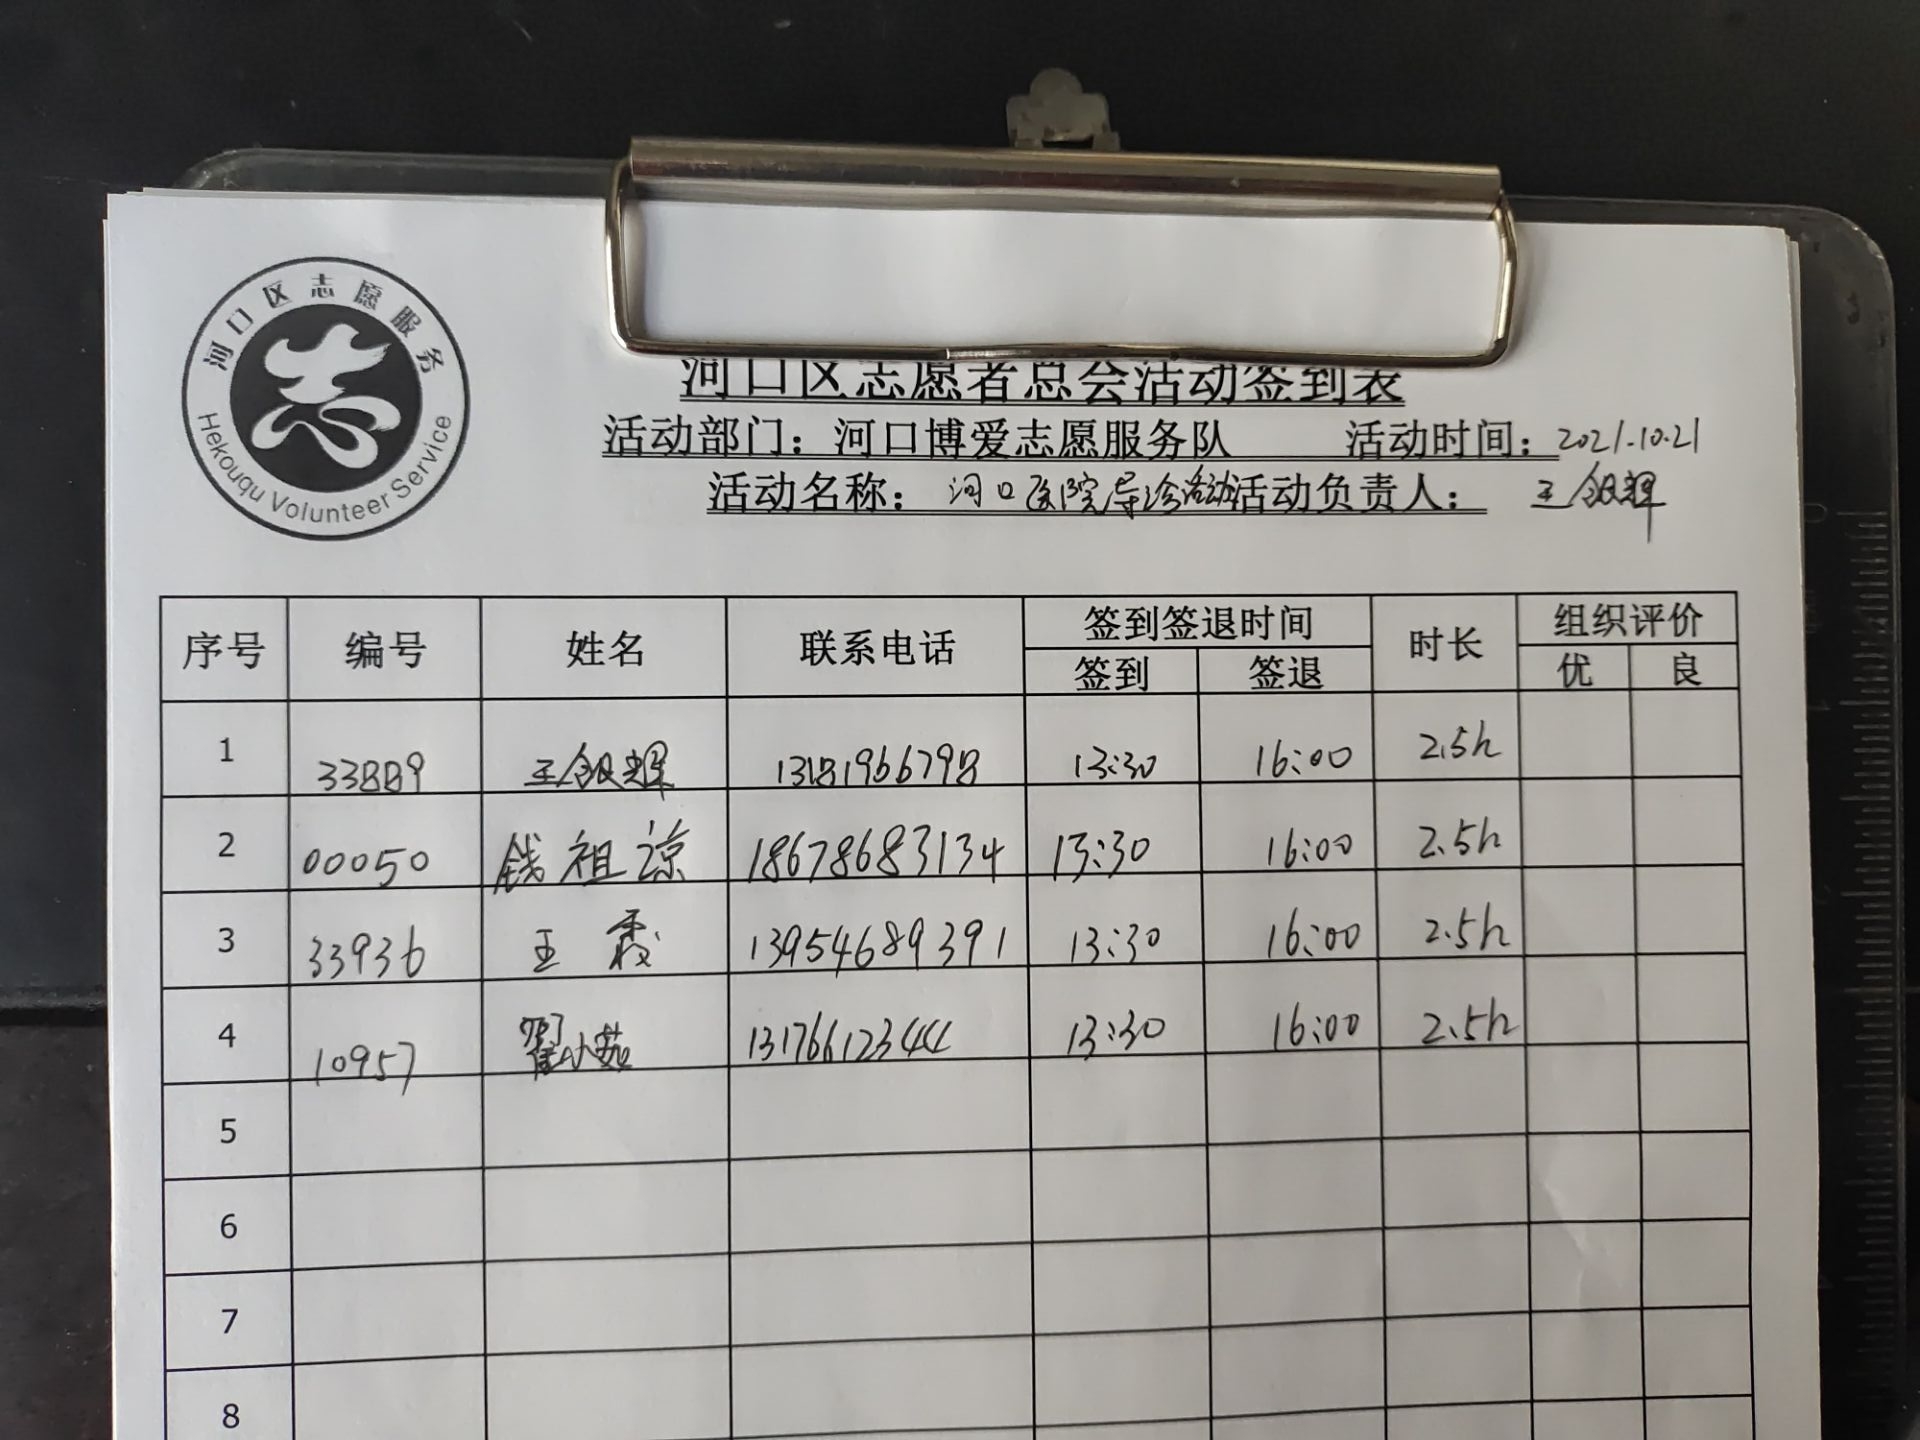 河口区志愿服务
Hekouqu Volunteer Service
河口区志愿者总会活动签到表
活动部门：河口博爱志愿服务队 活动时间：2021.10.21
活动名称：河口医院导诊活动 活动负责人：王银辉
序号 编号 姓名 联系电话 签到签退时间 时长 组织评价
签到 签退 优 良
1 33889 王银辉 13181966798 13:30 16:00 2.5h
2 00050 钱祖谅 18678683134 13:30 16:00 2.5h
3 33936 王霞 13954689391 13:30 16:00 2.5h
4 10957 翟小茹 13176612344 13:30 16:00 2.5h
5
6
7
8